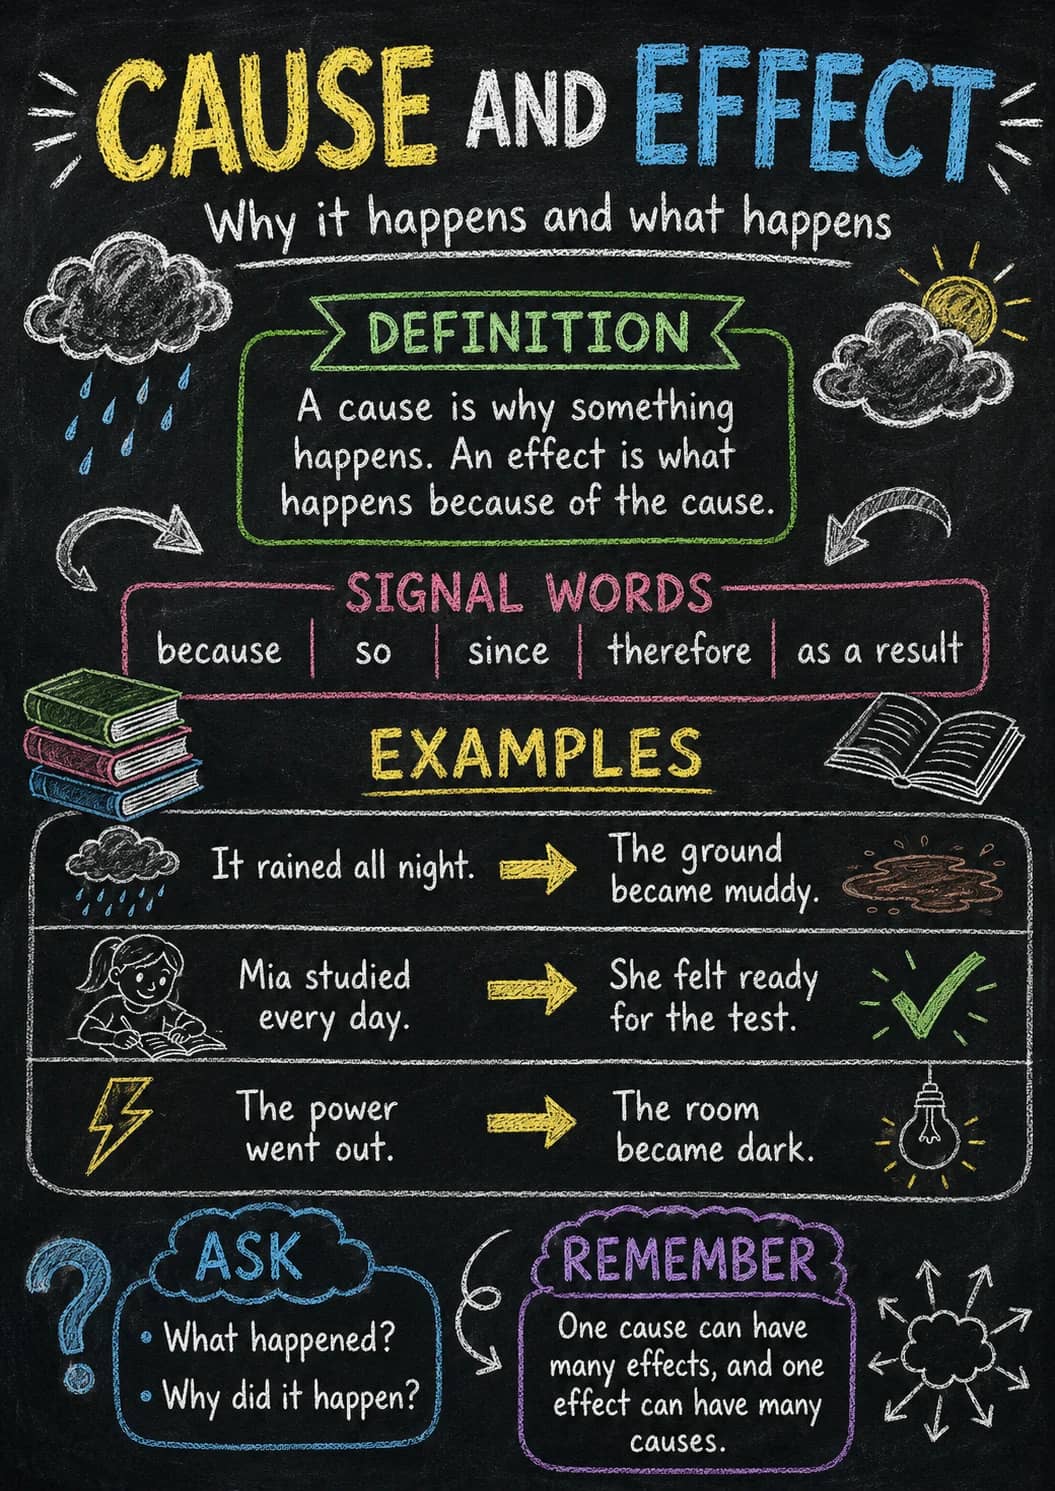 CAUSE AND EFFECT
Why it happens and what happens
DEFINITION
A cause is why something
happens. An effect is what
happens because of the cause.
SIGNAL WORDS
because | so | since | therefore | as a result
EXAMPLES
It rained all night.
The ground
became muddy.
Mia studied
every day.
She felt ready
for the test.
The power
went out.
The room
became dark.
ASK
• What happened?
• Why did it happen?
REMEMBER
One cause can have
many effects, and one
effect can have many
causes.